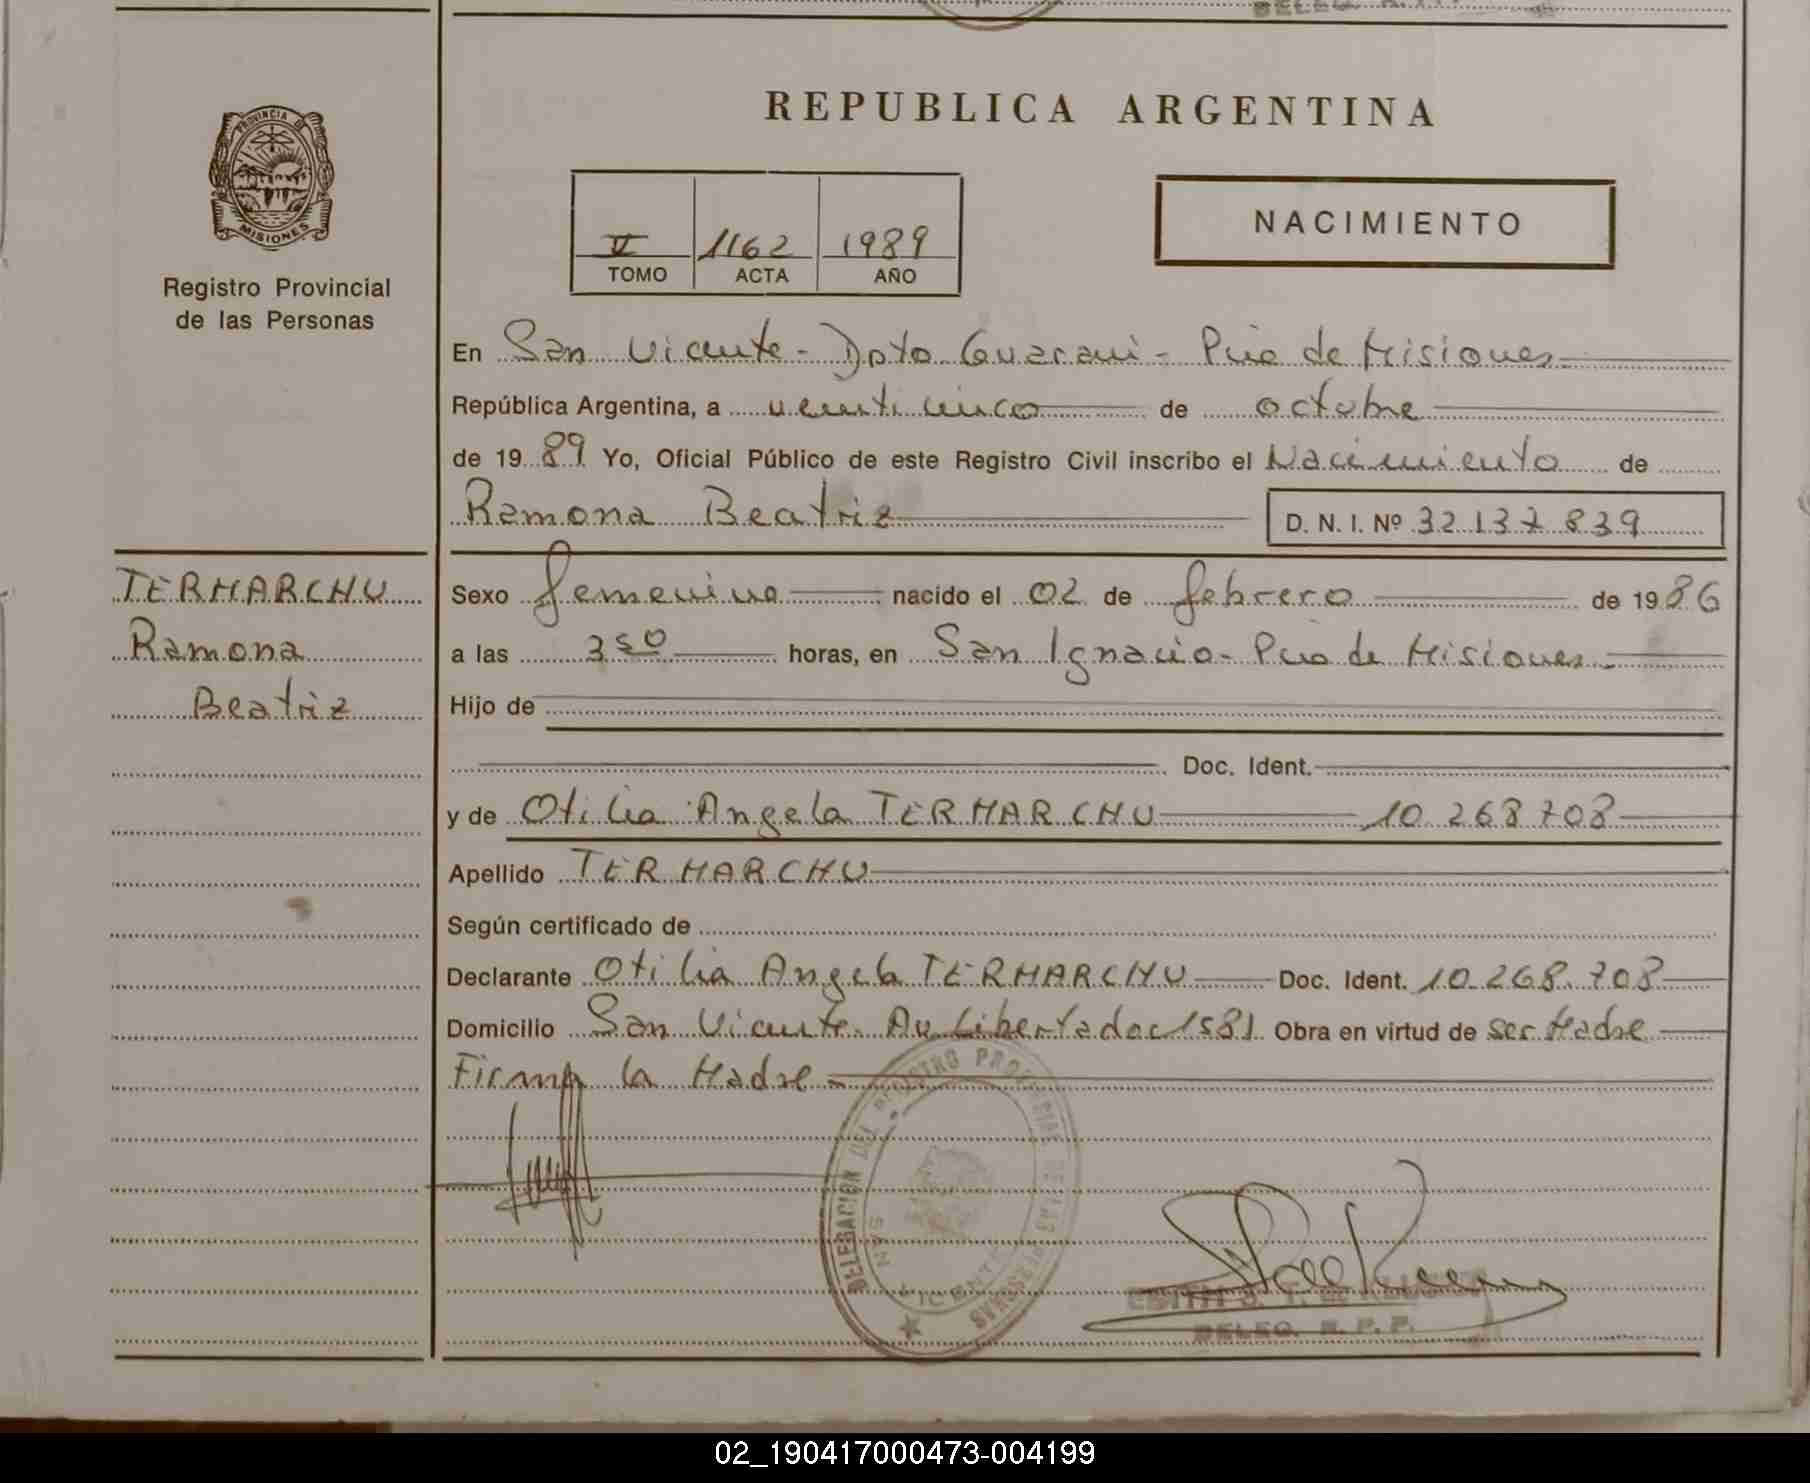 REPUBLICA ARGENTINA
PROVINCIA DE
MISIONES
Registro Provincial
de las Personas
V 1162 1989
TOMO ACTA AÑO
NACIMIENTO
En San Vicente - Dpto Guaraní - Pcia de Misiones
República Argentina, a venticinco de octubre
de 1989 Yo, Oficial Público de este Registro Civil inscribo el Nacimiento de
Ramona Beatriz D. N. I. Nº 32.137.839
TERMARCHU
Ramona
Beatriz
Sexo femenino nacido el 02 de febrero de 1986
a las 3 50 horas, en San Ignacio - Pcia de Misiones
Hijo de
Doc. Ident.
y de Otilia Angela TERMARCHU 10.268.708
Apellido TERMARCHU
Según certificado de
Declarante Otilia Angela TERMARCHU Doc. Ident. 10.268.708
Domicilio San Vicente. Av Libertador 1581 Obra en virtud de ser Madre
Firma la Madre
DELEGACION DEL REGISTRO PROVINCIAL DE LAS PERSONAS
SAN VICENTE
DELEG. R. P. P.
02_190417000473-004199